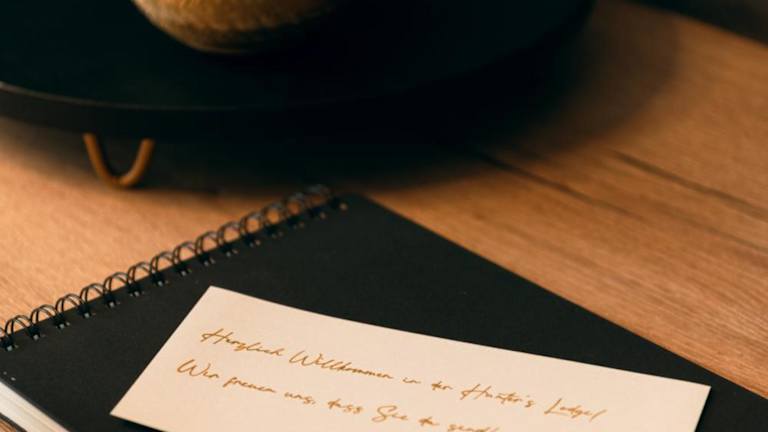 Herzlich Willkommen in der Hunter's Lodge!
Wir freuen uns, dass Sie da sind!